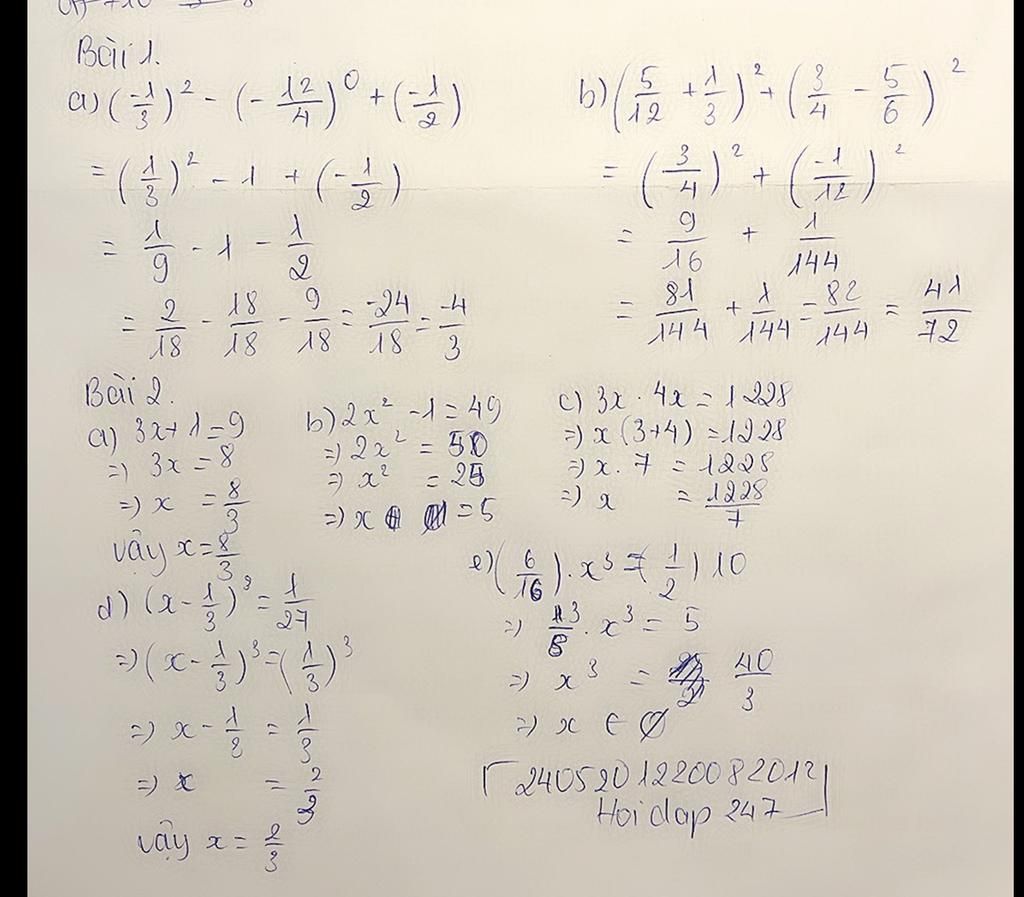 Bài 1.
a) (-1/3)^2 - (-12/4)^0 + (-1/2)
= (1/3)^2 - 1 + (-1/2)
= 1/9 - 1 - 1/2
= 2/18 - 18/18 - 9/18 = -24/18 = -4/3
b) (5/12 + 1/3)^2 + (3/4 - 5/6)^2
= (3/4)^2 + (-1/12)^2
= 9/16 + 1/144
= 81/144 + 1/144 = 82/144 = 41/72
Bài 2.
a) 3x + 1 = 9
=) 3x = 8
=) x = 8/3
vậy x = 8/3
b) 2x^2 - 1 = 49
=) 2x^2 = 50
=) x^2 = 25
=) x = 5
c) 3x . 4x = 1228
=) x (3+4) = 1228
=) x . 7 = 1228
=) x = 1228/7
d) (x - 1/3)^3 = 1/27
=) (x - 1/3)^3 = (1/3)^3
=) x - 1/3 = 1/3
=) x = 2/3
vậy x = 2/3
e) (6/16) . x^3 = (1/2) 10
=) 3/8 . x^3 = 5
=) x^3 = 40/3
=) x ∈ ∅
2405201220082012
Hoidap 247